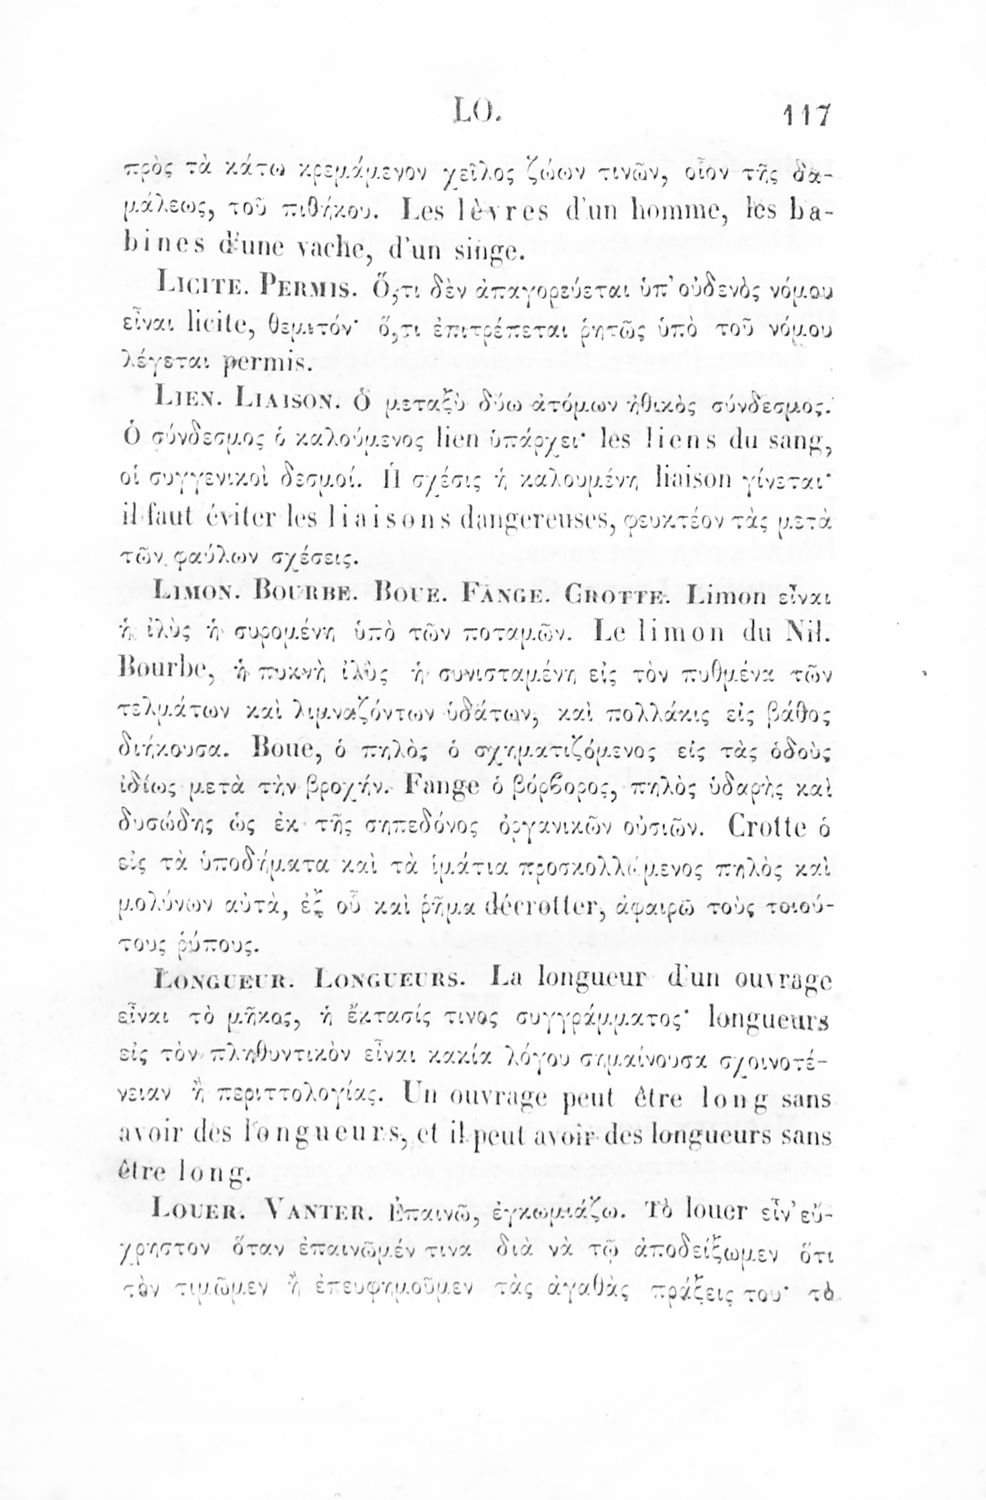 LO. 117
πρὸς τὰ κάτω κρεμάμενον χεῖλος ζώων τινῶν, οἷον τῆς δα-
μάλεως, τοῦ πιθήκου. Les lèvres d'un homme, les ba-
bines d'une vache, d'un singe.
LICITE. PERMIS. Ὅ,τι δὲν ἀπαγορεύεται ὑπ' οὐδενὸς νόμου
εἶναι licite, θεμιτόν· ὅ,τι ἐπιτρέπεται ῥητῶς ὑπὸ τοῦ νόμου
λέγεται permis.
LIEN. LIAISON. Ὁ μεταξὺ δύω ἀτόμων ἠθικὸς σύνδεσμος.
Ὁ σύνδεσμος ὁ καλούμενος lien ὑπάρχει· les liens du sang,
οἱ συγγενικοὶ δεσμοί. Ἡ σχέσις ἡ καλουμένη liaison γίνεται·
il faut éviter les liaisons dangereuses, φευκτέον τὰς μετὰ
τῶν φαύλων σχέσεις.
LIMON. BOURBE. BOUE. FANGE. CROTTE. Limon εἶναι
ἡ ἰλὺς ἡ συρομένη ὑπὸ τῶν ποταμῶν. Le limon du Nil.
Bourbe, ἡ πυκνὴ ἰλὺς ἡ συνισταμένη εἰς τὸν πυθμένα τῶν
τελμάτων καὶ λιμναζόντων ὑδάτων, καὶ πολλάκις εἰς βάθος
διήκουσα. Boue, ὁ πηλὸς ὁ σχηματιζόμενος εἰς τὰς ὁδοὺς
ἰδίως μετὰ τὴν βροχήν. Fange ὁ βόρβορος, πηλὸς ὑδαρὴς καὶ
δυσώδης ὡς ἐκ τῆς σηπεδόνος ὀργανικῶν οὐσιῶν. Crotte ὁ
εἰς τὰ ὑποδήματα καὶ τὰ ἱμάτια προσκολλώμενος πηλὸς καὶ
μολύνων αὐτὰ, ἐξ οὗ καὶ ῥῆμα décrotter, ἀφαιρῶ τοὺς τοιού-
τους ῥύπους.
LONGUEUR. LONGUEURS. La longueur d'un ouvrage
εἶναι τὸ μῆκος, ἡ ἔκτασίς τινος συγγράμματος· longueurs
εἰς τὸν πληθυντικὸν εἶναι κακία λόγου σημαίνουσα σχοινοτέ-
νειαν ἢ περιττολογίας. Un ouvrage peut être long sans
avoir des longueurs, et il peut avoir des longueurs sans
être long.
LOUER. VANTER. Ἐπαινῶ, ἐγκωμιάζω. Τὸ louer εἶν' εὔ-
χρηστον ὅταν ἐπαινῶμέν τινα διὰ νὰ τῷ ἀποδείξωμεν ὅτι
τὸν τιμῶμεν ἢ ἐπευφημοῦμεν τὰς ἀγαθὰς πράξεις του· τὸ